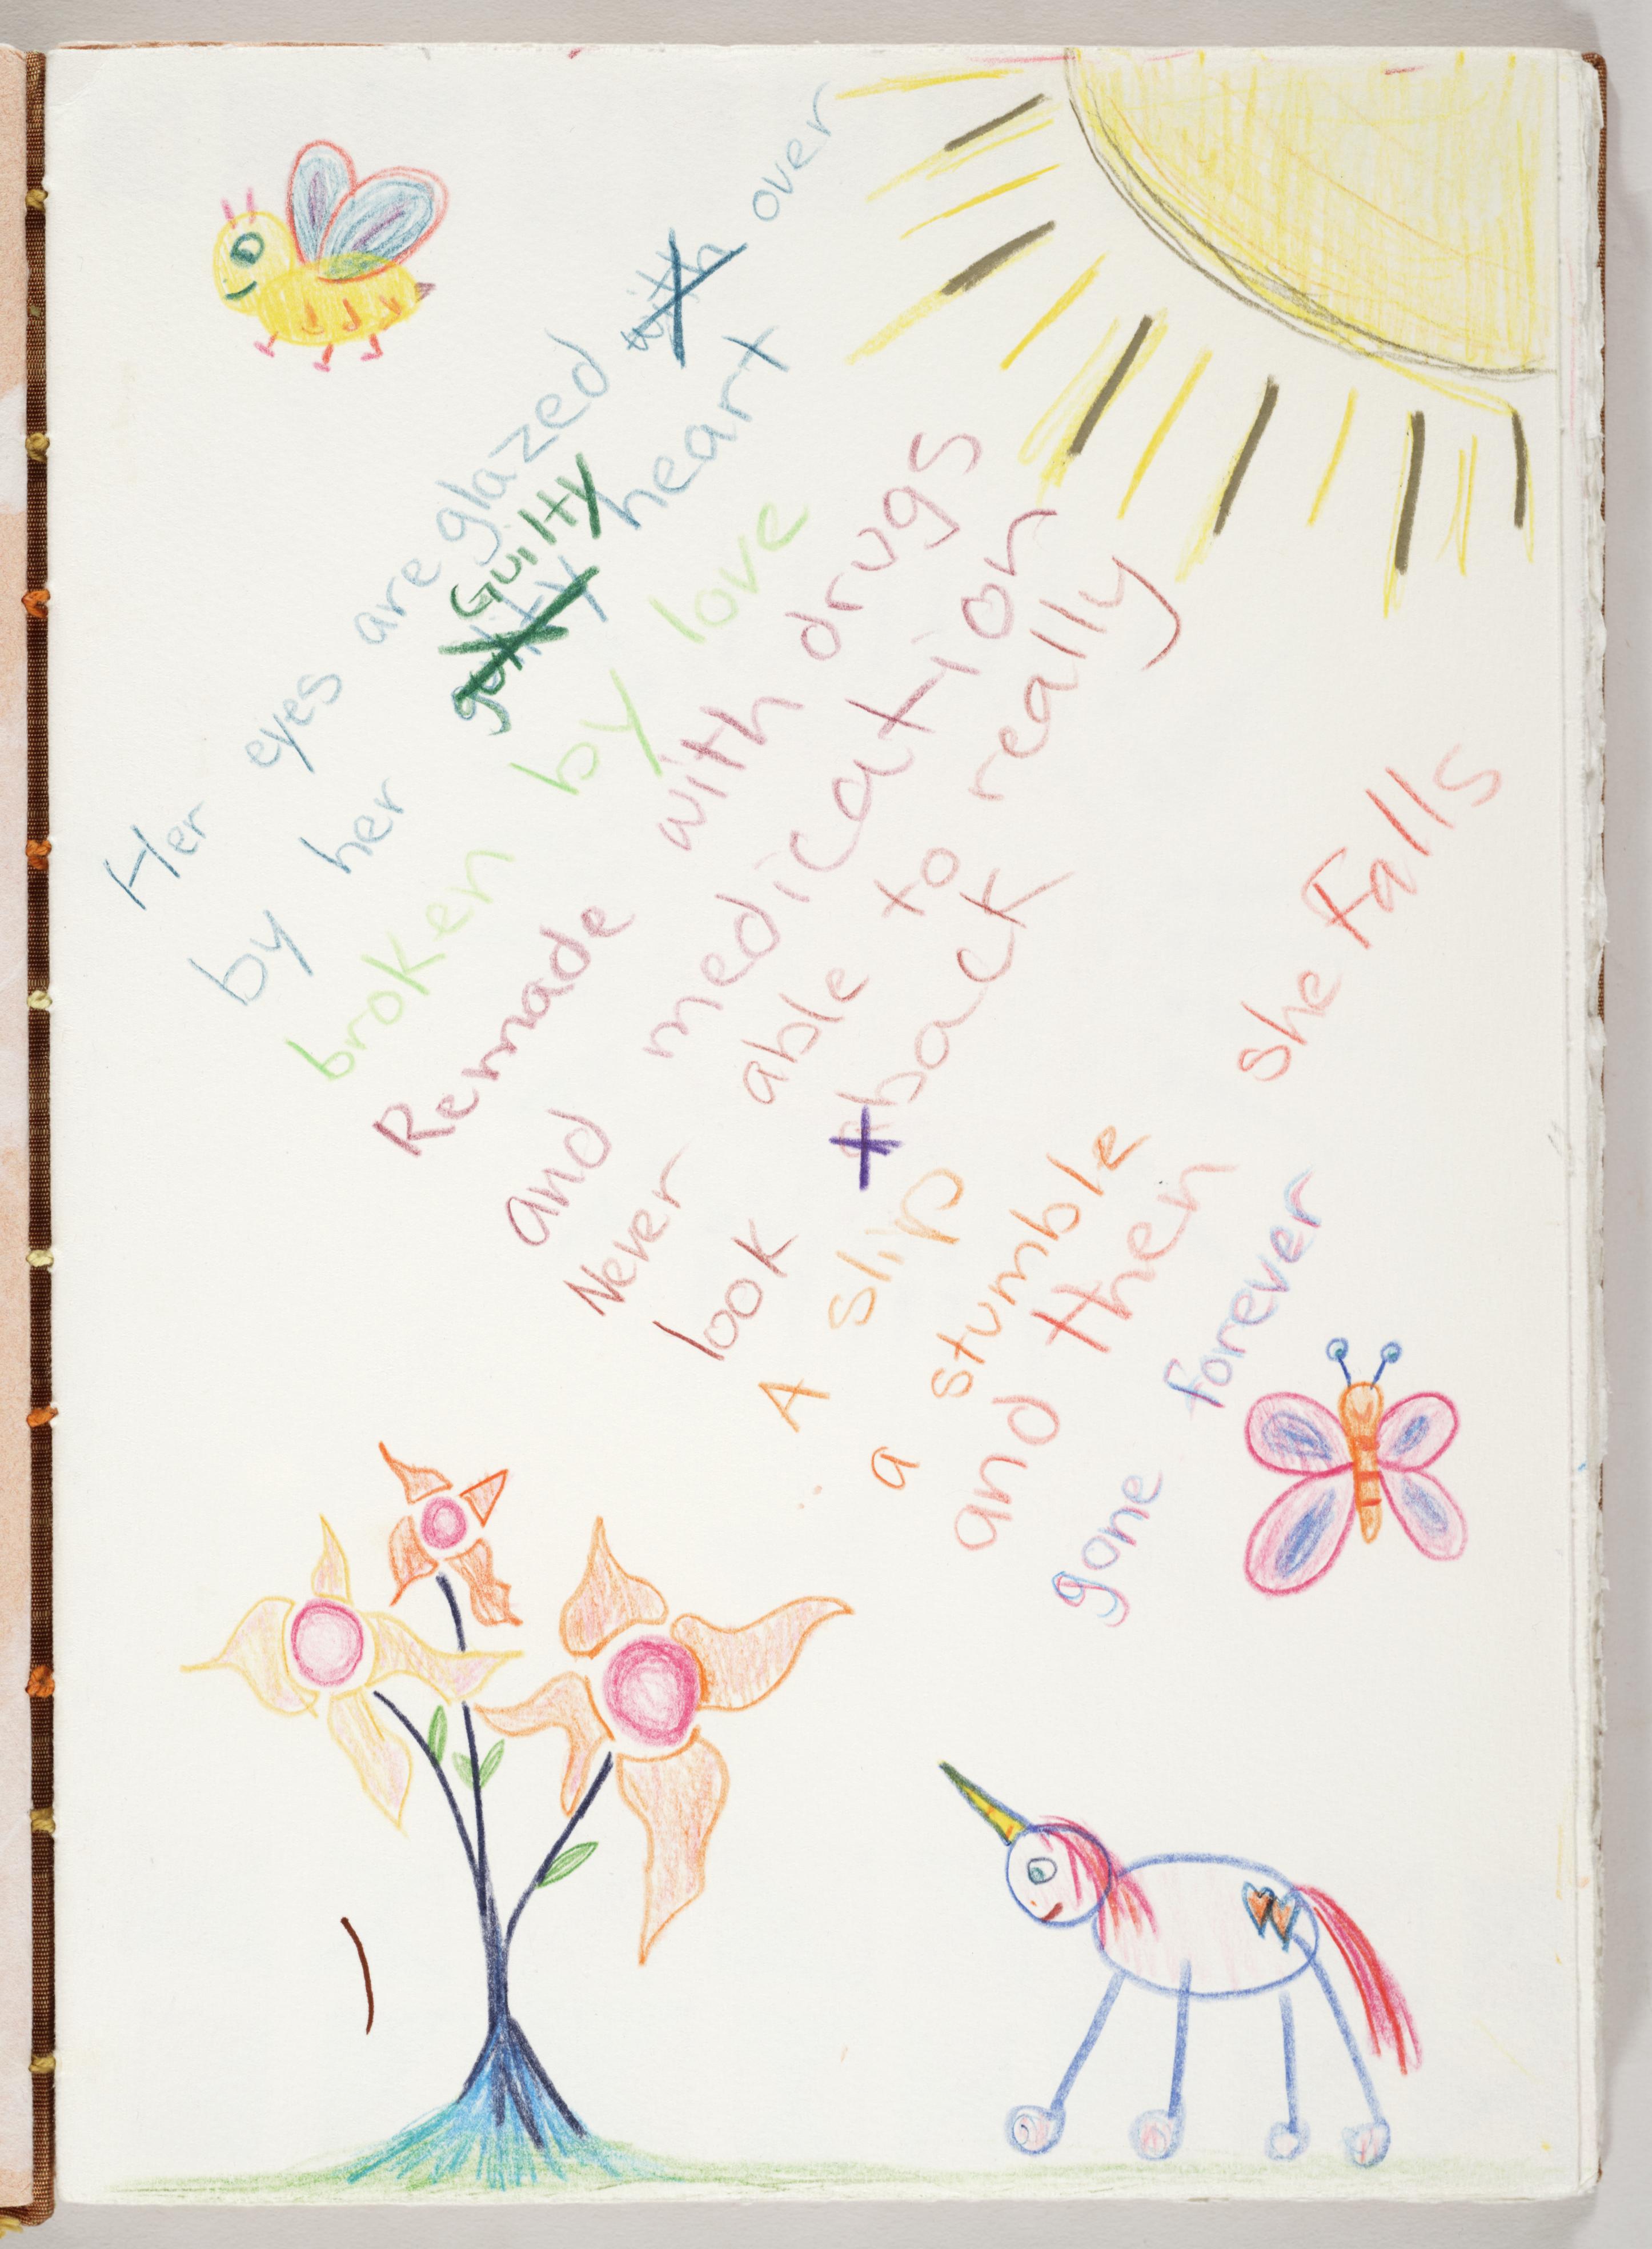 Her eyes are glazed with over
by her guilty Guilty heart
broken by love
Remade with drugs
and medication
Never able to really
look back
A slip
a stumble
and then she Falls
gone forever